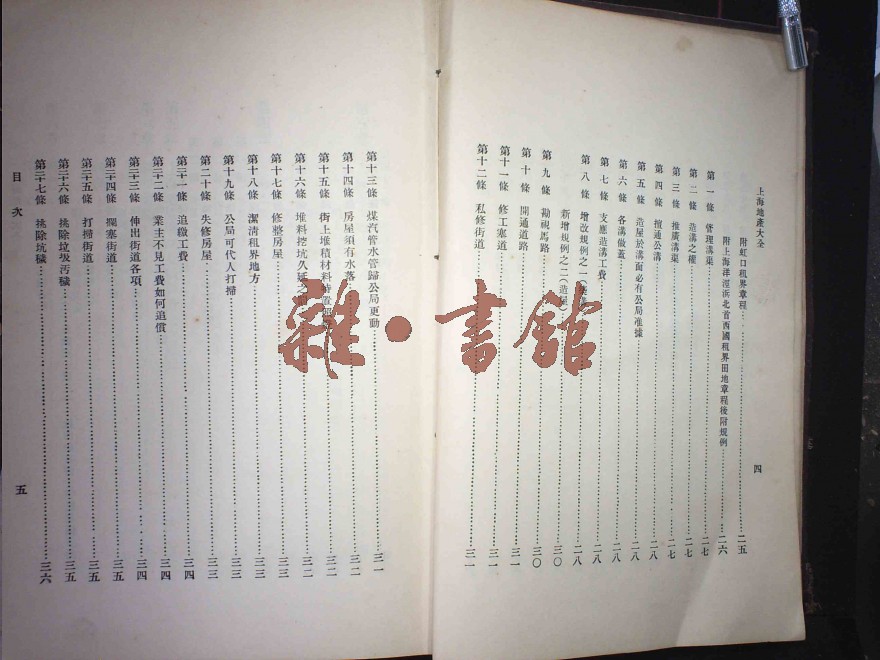 上海地產大全
四
附虹口租界章程……二五
附上海洋涇浜北首西國租界田地章程後附規例……二六
第一條 管理溝渠……二七
第二條 造溝之權……二七
第三條 推廣溝渠……二七
第四條 擅通公溝……二八
第五條 造屋於溝面必有公局准據……二八
第六條 各溝做蓋……二八
第七條 支應造溝工費……二八
第八條 增改規例之一……二八
新增規例之二(造屋)……三〇
第九條 勘視馬路……三〇
第十條 開通道路……三一
第十一條 修工塞道……三一
第十二條 私修街道……三一
第十三條 煤汽管水管歸公局更動……三一
第十四條 房屋須有水落……三二
第十五條 街上堆積材料……三二
第十六條 堆料挖坑久延之……三二
第十七條 修整房屋……三三
第十八條 潔清租界地方……三三
第十九條 公局可代人打掃……三三
第二十條 失修房屋……三三
第二十一條 追繳工費……三四
第二十二條 業主不見工費如何追償……三四
第二十三條 伸出街道各項……三四
第二十四條 攔塞街道……三五
第二十五條 打掃街道……三五
第二十六條 挑除垃圾汚穢……三五
第二十七條 挑除坑穢……三六
目次
五
雜·書館